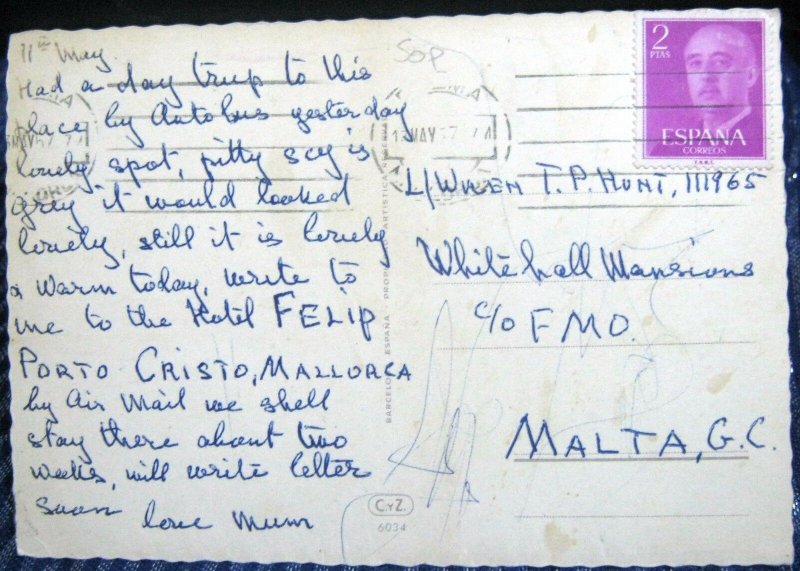 11th May
Had a day trip to this
place by Autobus yesterday
lovely spot, pitty scy is
grey it would looked
lovely, still it is lovely
a warm today, write to
me to the Hotel FELIP
PORTO CRISTO, MALLORCA
by Air Mail we shell
stay there about two
weeks, will write letter
suon love Mum
2
PTAS
ESPAÑA
CORREOS
F.N.M.T.
MAY 57
L/WREN T. P. HUNT, 111965
Whitehall Mansions
c/o F M O.
MALTA, G.C.
BARCELONA ESPAÑA
C.yZ.
6034